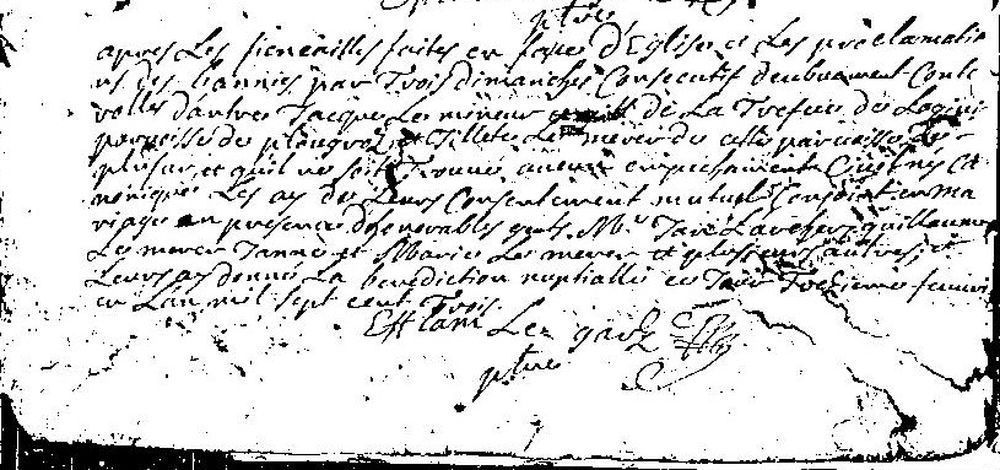 ptre
apres Les fiencailles faites en face d'Eglise et Les proclamatio
ns des bannies par Trois dimanches Consecutif deubuement Conte
rolles dantre Jacque Le mineur de La Trefue de Logiui
parroisse de plougroz et Le mever de cette parroisse
plusar, et qu'il ne soit Trouué aucun empeschement Ciuil ny Ca
nonique Les ay de Leurs Consentement mutuel Conjoint en ma
riage en presence d'honorables gents Mr Guillaume
Le mever Janne et Marie Le mever et plusieurs autres, et
Leurs ay donné La benediction nuptialle ce Jour Trezieme feuuri
er Lan mil sept cent Trois
Efflam Le
ptre